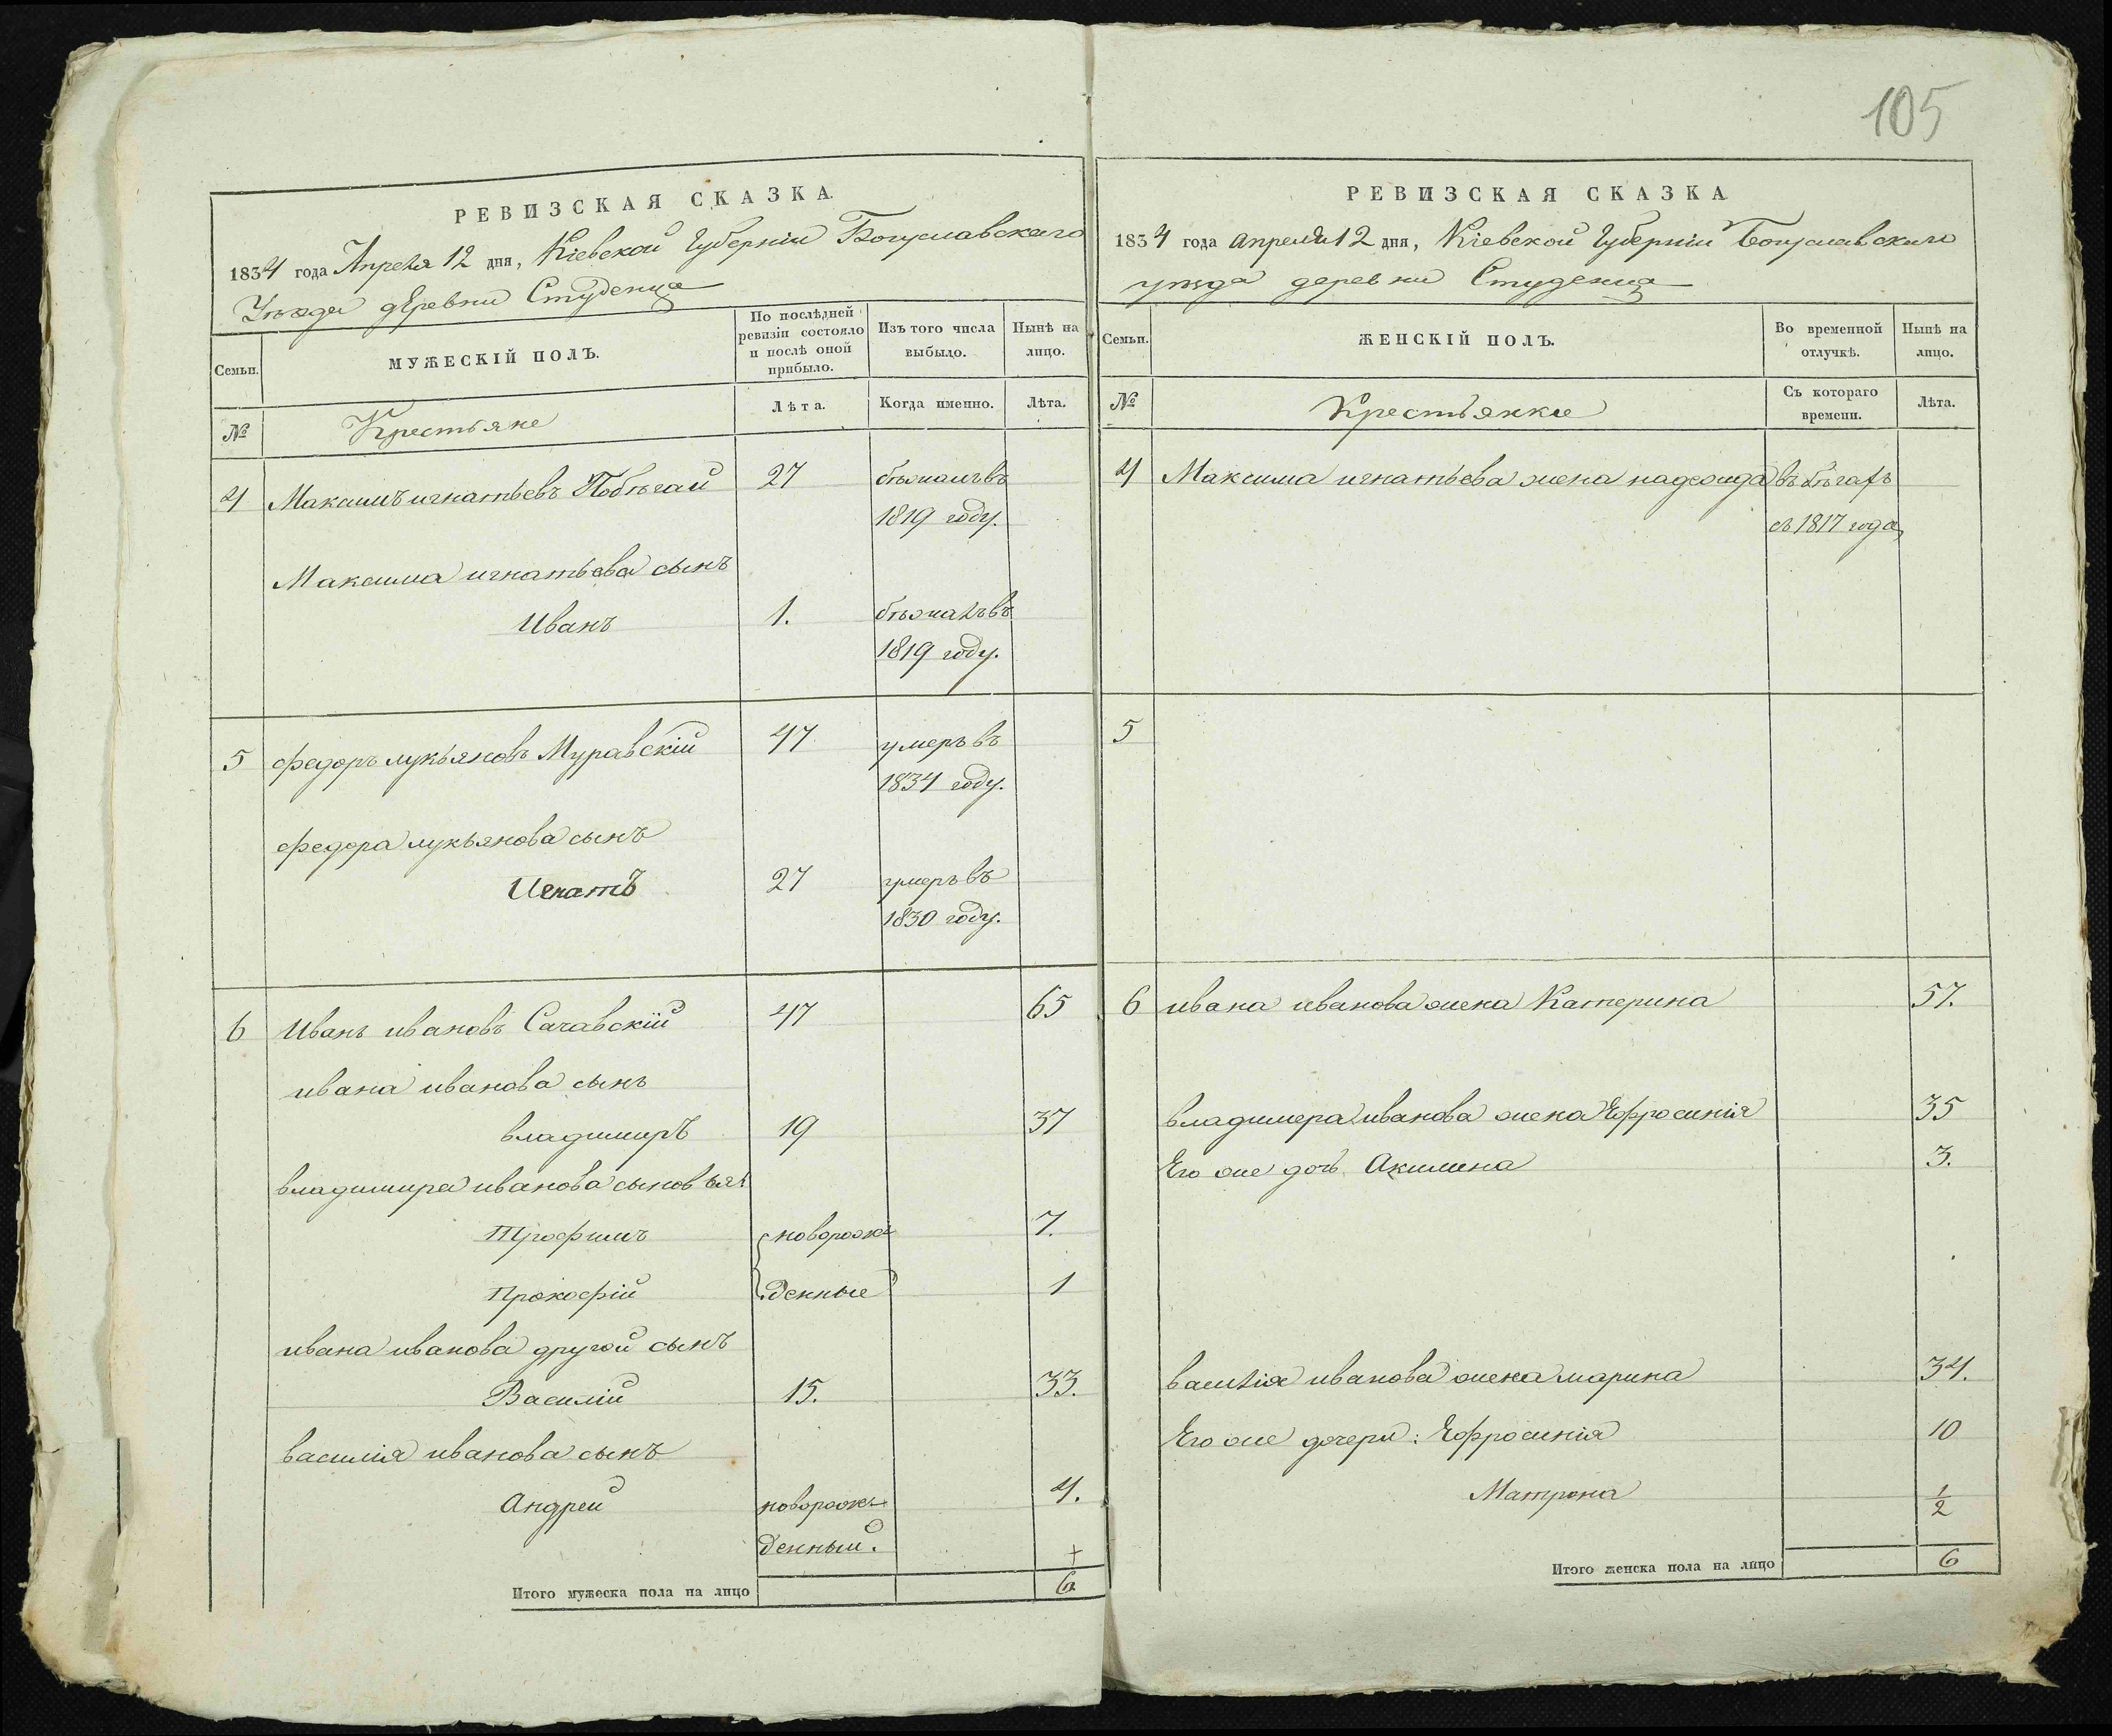 105
РЕВИЗСКАЯ СКАЗКА
1834 года Апреля 12 дня, Кіевской Губерніи Богуславского
Уѣзда деревни Студенца
Семьи.
МУЖЕСКІЙ ПОЛЪ.
По послѣдней ревизіи состояло и послѣ оной прибыло.
Изъ того числа выбыло.
Нынѣ на лицо.
№
Крестьяне
Лѣта.
Когда именно.
Лѣта.
4 Максимъ игнатьевъ Побѣгай 27 бѣжалъ въ
1819 году.
Максима игнатьева сынъ
Иванъ 1. бѣжалъ въ
1819 году.
5 федоръ лукьяновъ Муравскій 47 умеръ въ
1834 году.
федора лукьянова сынъ
Игнатъ 27 умеръ въ
1830 году.
6 Иванъ ивановъ Сачавскій 47 65
ивана иванова сынъ
владимиръ 19 37
владимира иванова сыновья
Трофимъ новорож 7.
Прокофій денные 1
ивана иванова другой сынъ
Василій 15. 33.
василія иванова сынъ
Андрей новорож 4.
денный.
+
Итого мужеска пола на лицо 6
РЕВИЗСКАЯ СКАЗКА
1834 года апреля 12 дня, Кіевской Губерніи Богуславского
уѣзда деревни Студенца
Семьи.
ЖЕНСКІЙ ПОЛЪ.
Во временной отлучкѣ.
Нынѣ на лицо.
№
Крестьянки
Съ котораго времени.
Лѣта.
4 Максима игнатьева жена надежда въ бѣгахъ
съ 1817 года
5
6 ивана иванова жена Катерина 57.
владимера иванова жена Ефросинія 35
Его же дочь Акилина 3.
василія иванова жена марина 34.
Его же дочери: Ефросинія 10
Матрона 1/2
Итого женска пола на лицо 6